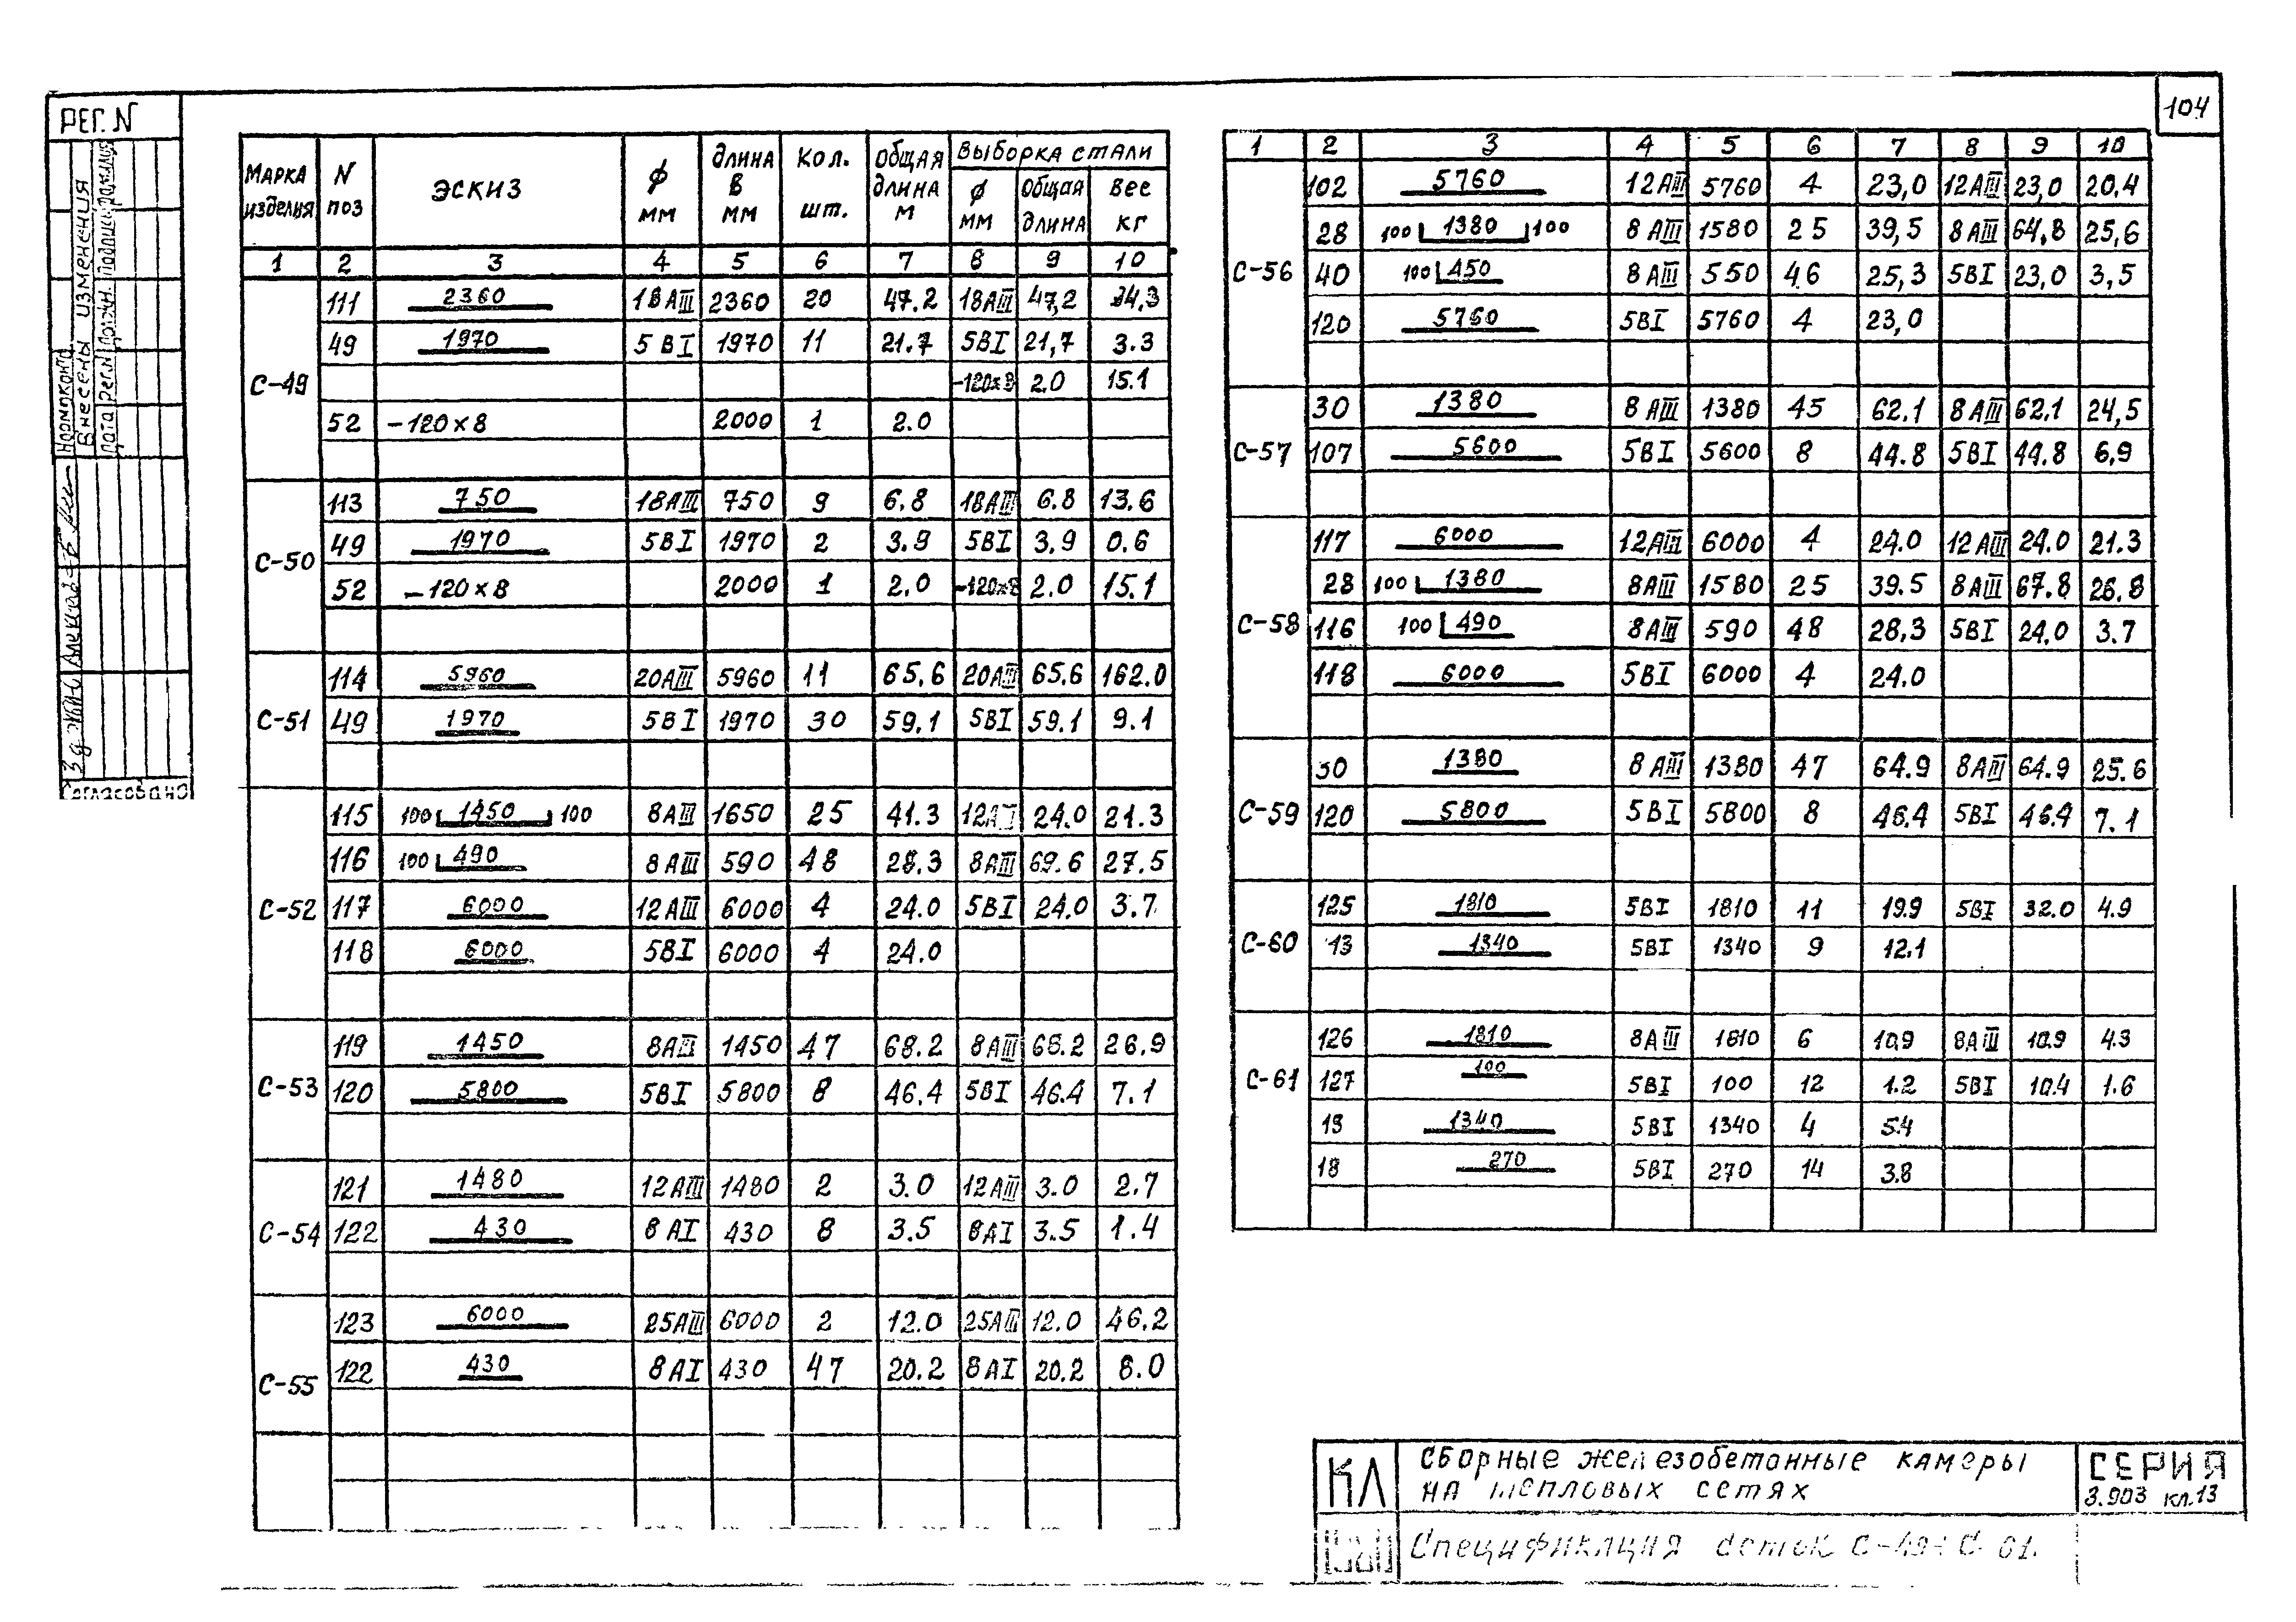 104
РЕГ. N
Внесены изменения
Дата Рег.N Должн. Подпись Фамилия
Нормконтр.
Согласовано
Марка изделия | N поз | Эскиз | ф мм | Длина в мм | Кол. шт. | Общая длина м | Выборка стали
ф мм | Общая длина | Вес кг
1 2 3 4 5 6 7 8 9 10
111 2360 18AIII 2360 20 47.2 18AIII 47,2 94,3
49 1970 5BI 1970 11 21.7 5BI 21,7 3.3
С-49 -120×8 2.0 15.1
52 -120×8 2000 1 2.0
113 750 18AIII 750 9 6.8 18AIII 6.8 13.6
С-50 49 1970 5BI 1970 2 3.9 5BI 3,9 0.6
52 -120×8 2000 1 2.0 -120×8 2.0 15.1
114 5960 20AIII 5960 11 65,6 20AIII 65.6 162.0
С-51 49 1970 5BI 1970 30 59,1 5BI 59.1 9.1
115 100 1450 100 8AIII 1650 25 41.3 12AIII 24.0 21.3
116 100 490 8AIII 590 48 28.3 8AIII 69.6 27.5
С-52 117 6000 12AIII 6000 4 24.0 5BI 24.0 3.7
118 6000 5BI 6000 4 24.0
119 1450 8AIII 1450 47 68.2 8AIII 68.2 26.9
С-53 120 5800 5BI 5800 8 46.4 5BI 46.4 7.1
121 1480 12AIII 1480 2 3.0 12AIII 3.0 2.7
С-54 122 430 8AI 430 8 3.5 8AI 3.5 1.4
123 6000 25AIII 6000 2 12.0 25AIII 12.0 46.2
С-55 122 430 8AI 430 47 20.2 8AI 20.2 8.0
1 2 3 4 5 6 7 8 9 10
102 5760 12AIII 5760 4 23,0 12AIII 23,0 20,4
28 100 1380 100 8AIII 1580 25 39,5 8AIII 64,8 25,6
С-56 40 100 450 8AIII 550 46 25,3 5BI 23,0 3,5
120 5760 5BI 5760 4 23,0
30 1380 8AIII 1380 45 62.1 8AIII 62,1 24,5
С-57 107 5600 5BI 5600 8 44.8 5BI 44.8 6,9
117 6000 12AIII 6000 4 24.0 12AIII 24.0 21.3
28 100 1380 8AIII 1580 25 39.5 8AIII 67.8 26.8
С-58 116 100 490 8AIII 590 48 28,3 5BI 24,0 3.7
118 6000 5BI 6000 4 24.0
30 1380 8AIII 1380 47 64.9 8AIII 64.9 25.6
С-59 120 5800 5BI 5800 8 46.4 5BI 46.4 7.1
125 1810 5BI 1810 11 19.9 5BI 32.0 4.9
С-60 13 1340 5BI 1340 9 12.1
126 1810 8AIII 1810 6 10,9 8AIII 10.9 4.3
С-61 127 100 5BI 100 12 1.2 5BI 10.4 1.6
13 1340 5BI 1340 4 5.4
18 270 5BI 270 14 3.8
КЛ Сборные железобетонные камеры
на тепловых сетях
СЕРИЯ
3.903 кл.13
Спецификация сеток С-49÷С-61.